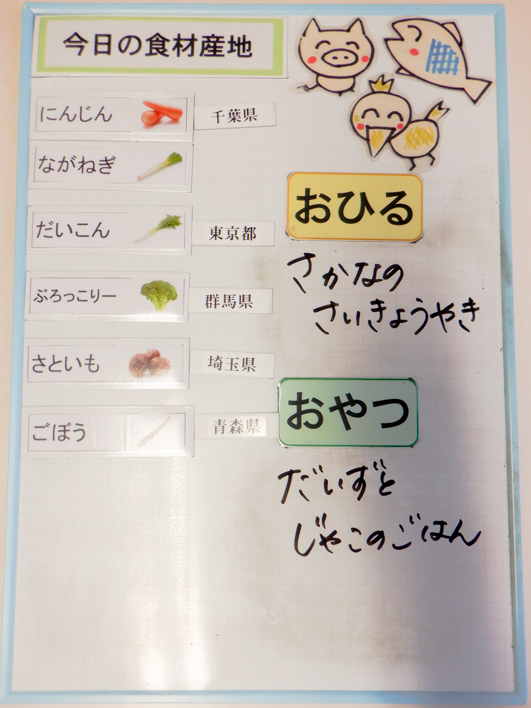 今日の食材産地
にんじん 千葉県
ながねぎ
だいこん 東京都
ぶろっこりー 群馬県
さといも 埼玉県
ごぼう 青森県
おひる
さかなの
さいきょうやき
おやつ
だいずと
じゃこのごはん